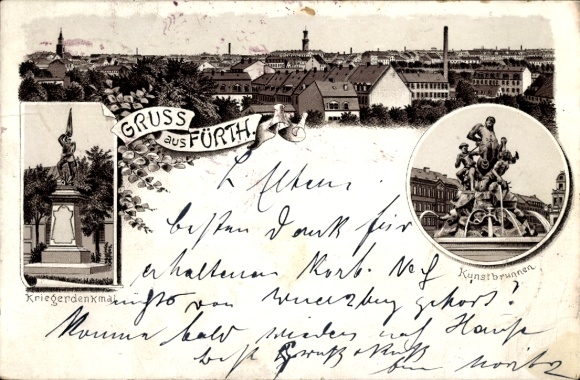 GRUSS
aus FÜRTH.
Kriegerdenkmal
Kunstbrunnen
L. Eltern.
besten Dank für
erhaltenen Korb.
nichts von gehört?
Komme bald wieder nach Hause
best Gruß & Kuß
Moritz